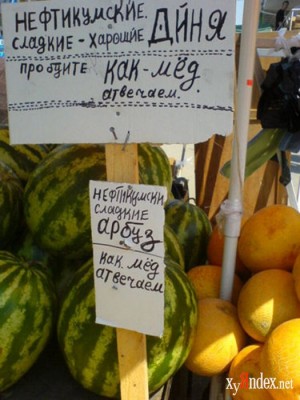 НЕФТИКУМСКИЕ.
СЛАДКИЕ - ХАРОШИЕ ДЙНЯ
ПРОБЦИТЕ КАК-МЁД
ОТВЕЧАЕМ.
НЕФТИКУМСКИ
СЛАДКИЕ
АРБУЗ
КАК. МЁД
ОТВЕЧАЕМ
XyIndex.net